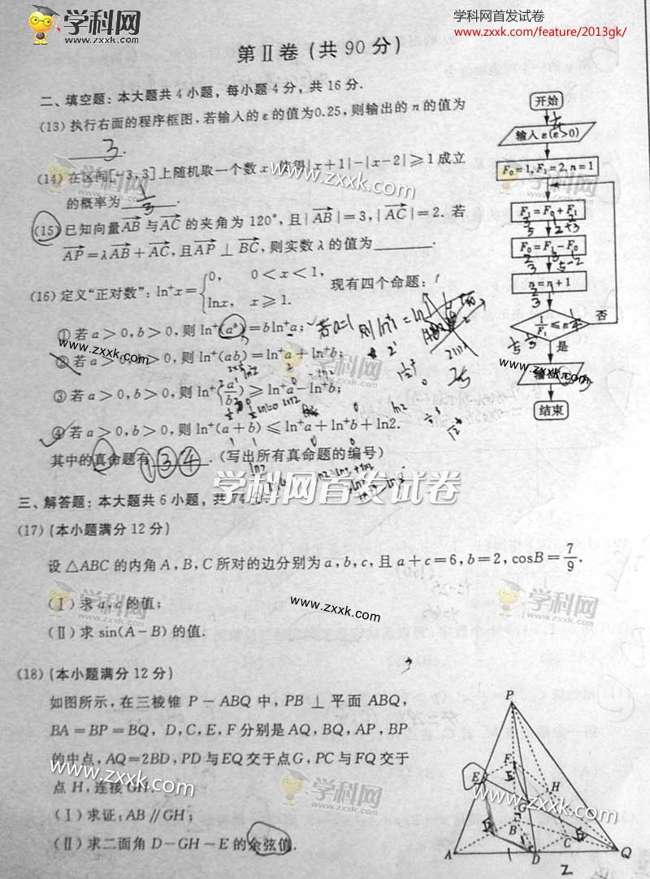 学科网
www.zxxk.com
学科网首发试卷
www.zxxk.com/feature/2013gk/
第Ⅱ卷 (共 90 分)
二、填空题：本大题共 4 小题，每小题 4 分，共 16 分.
(13) 执行右面的程序框图，若输入的 ε 的值为 0.25，则输出的 n 的值为
3.
(14) 在区间[-3,3]上随机取一个数 x，使得|x+1|-|x-2|≥1 成立
的概率为 1/3.
(15) 已知向量AB与AC的夹角为 120°，且|AB|=3，|AC|=2. 若
AP=λAB+AC，且AP⊥BC，则实数 λ 的值为________.
(16) 定义“正对数”：ln⁺x={0, 0<x<1, lnx, x≥1. 现有四个命题：
①若 a>0,b>0，则 ln⁺(aᵇ)=bln⁺a；
②若 a>0,b>0，则 ln⁺(ab)=ln⁺a+ln⁺b；
③若 a>0,b>0，则 ln⁺(a/b)≥ln⁺a-ln⁺b；
④若 a>0,b>0，则 ln⁺(a+b)≤ln⁺a+ln⁺b+ln2.
其中的真命题有 ①③④.（写出所有真命题的编号）
学科网首发试卷
三、解答题：本大题共 6 小题，共 74 分.
(17) (本小题满分 12 分)
设 △ABC 的内角 A,B,C 所对的边分别为 a,b,c，且 a+c=6,b=2,cosB=7/9.
(Ⅰ) 求 a,c 的值；
(Ⅱ) 求 sin(A-B) 的值.
www.zxxk.com
学科网
www.zxxk.com
(18) (本小题满分 12 分)
如图所示，在三棱锥 P-ABQ 中，PB⊥平面 ABQ，
BA=BP=BQ，D,C,E,F 分别是 AQ,BQ,AP,BP
的中点，AQ=2BD，PD 与 EQ 交于点 G，PC 与 FQ 交于
点 H，连接 GH.
(Ⅰ) 求证：AB∥GH；
(Ⅱ) 求二面角 D-GH-E 的余弦值.
www.zxxk.com
开始
输入 ε(ε>0)
F₀=1,F₁=2,n=1
F₁=F₀+F₁
F₀=F₁-F₀
n=n+1
1/F₁≤ε
否
是
输出 n
结束
P
F
E
H
G
B
C
A
D
Q